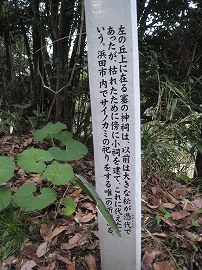 左の丘上に在る塞の神祠は、以前は大きな松が憑代で
あったが、枯れたために傍に小祠を建て、これに代えたと
いう。浜田市内でサイノカミの祀りをする唯一の
る